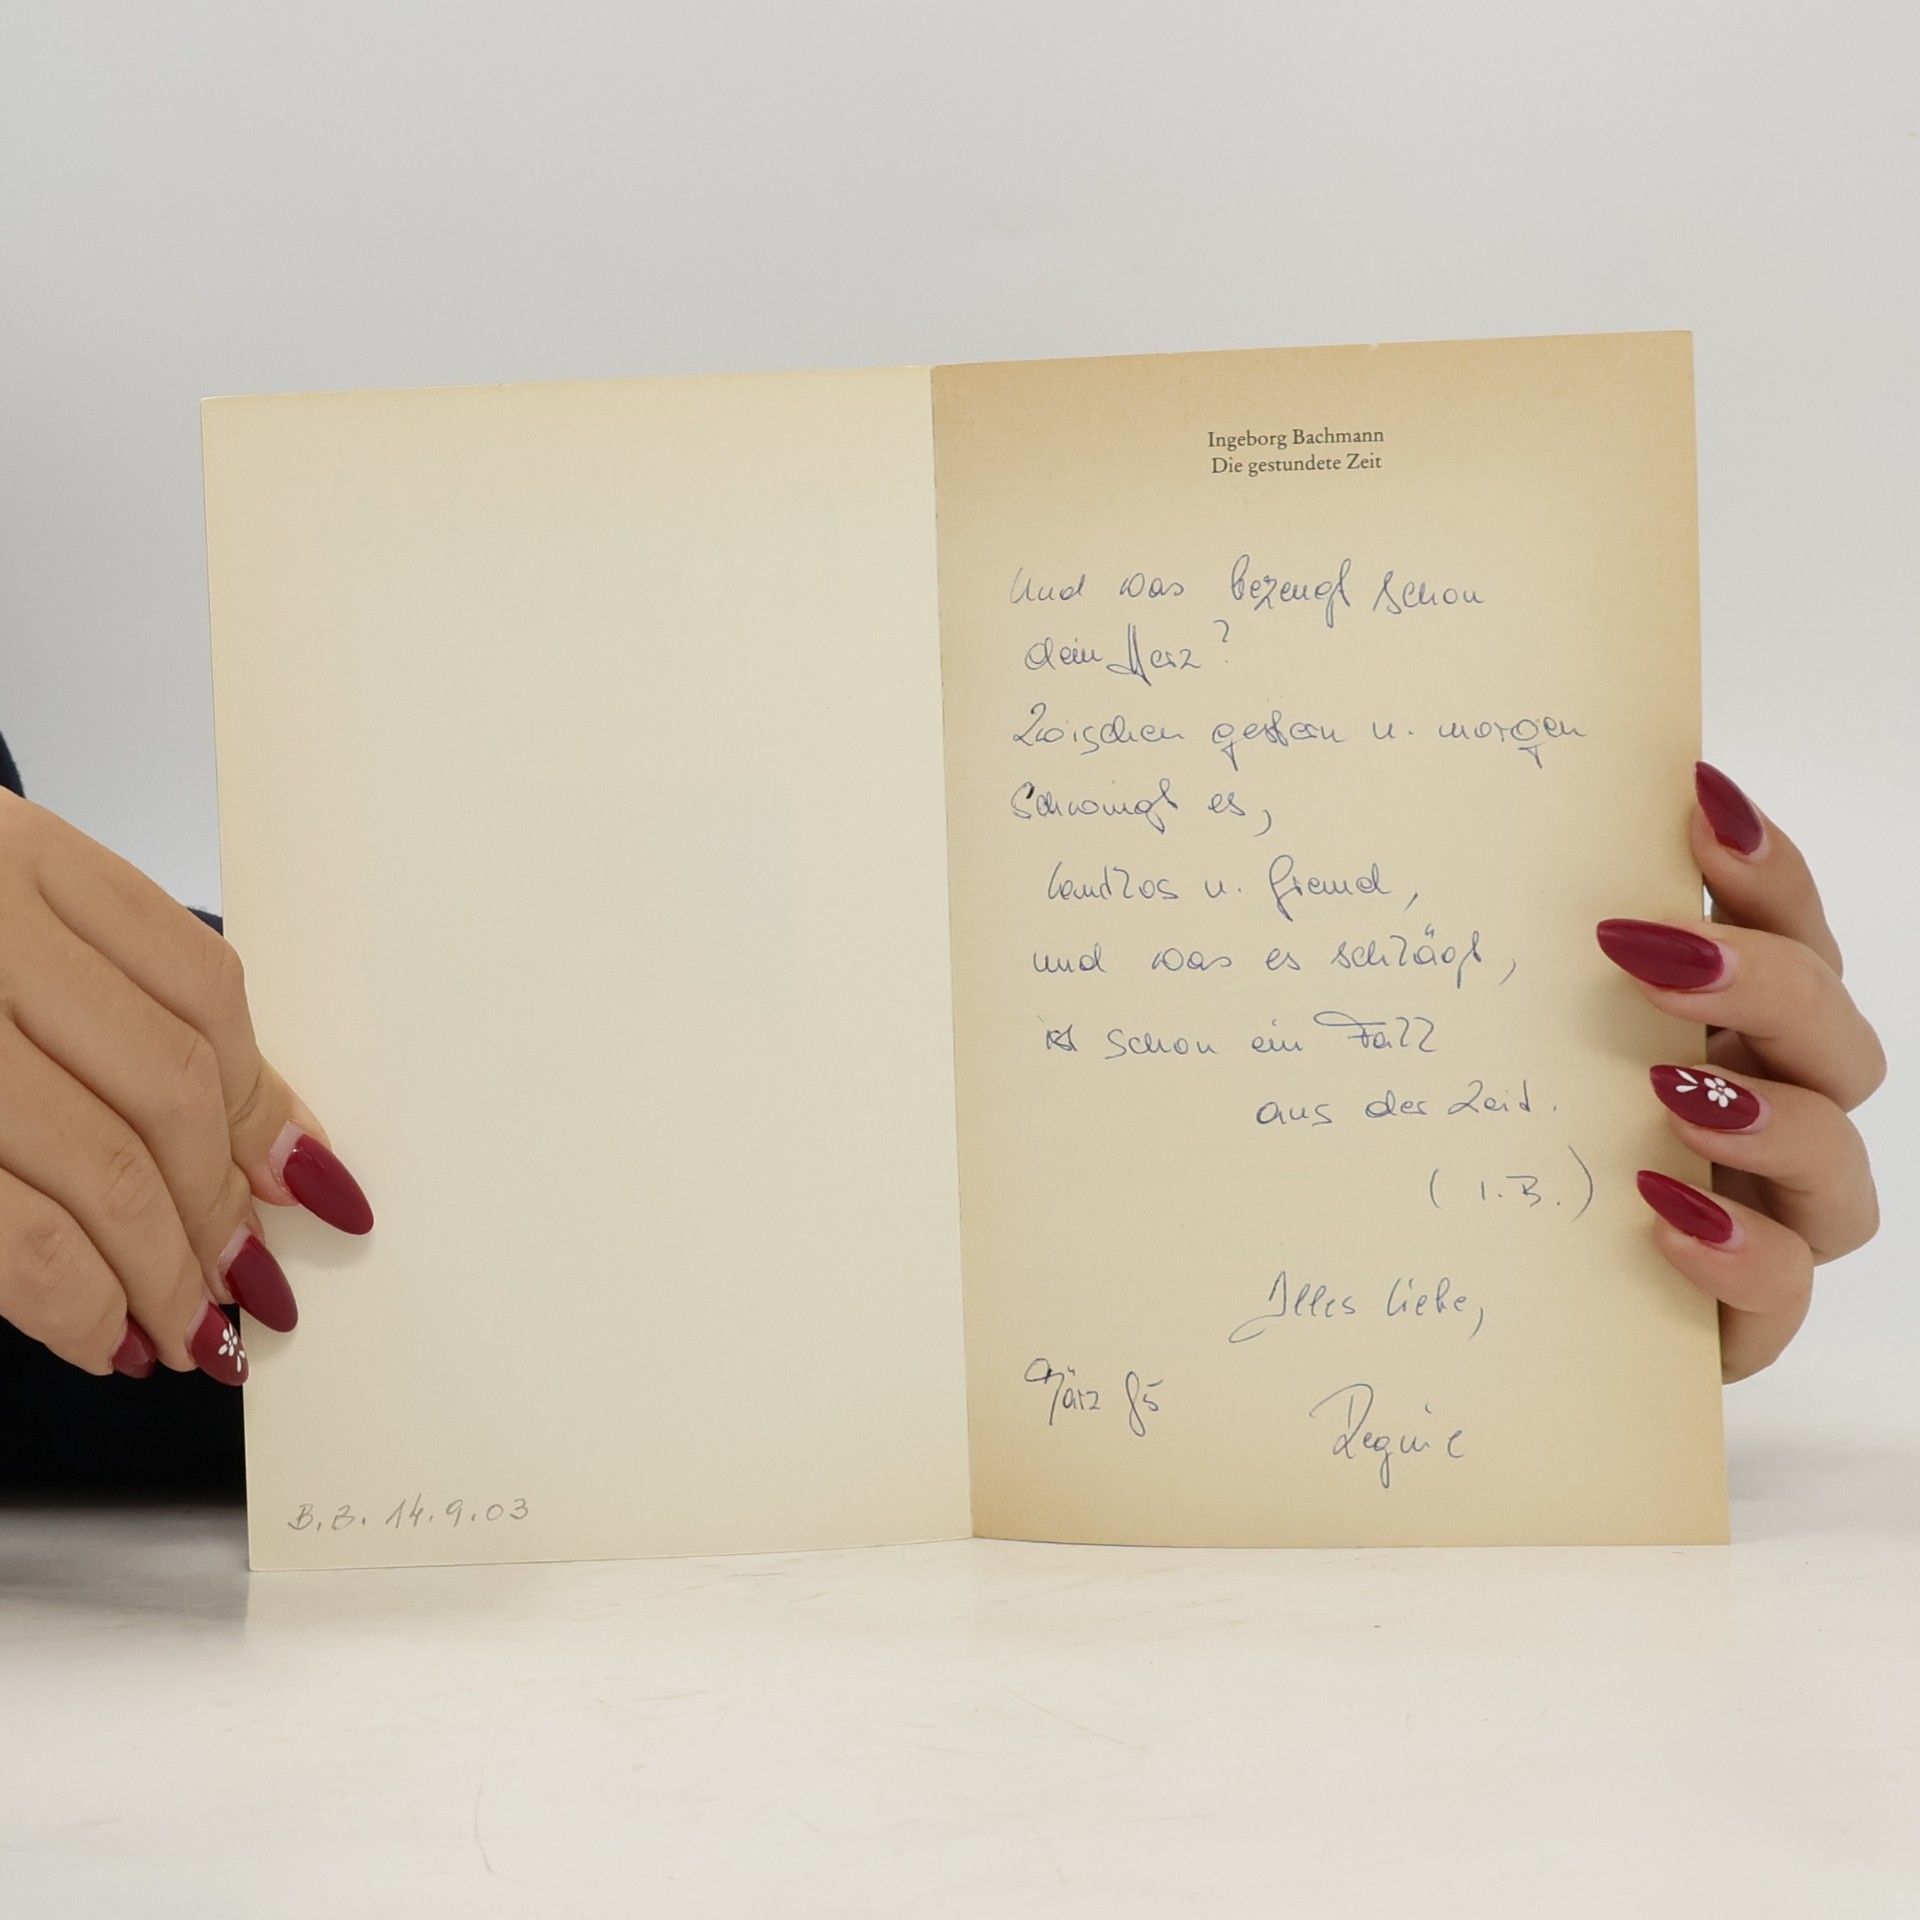 B.B. 14.9.03
Ingeborg Bachmann
Die gestundete Zeit
Und was bezeugt schon
dein Herz?
Zwischen gestern u. morgen
schwingt es,
lautlos u. fremd,
und was es schlägt,
ist schon ein Fall
aus der Zeit.
(I.B.)
Alles Liebe,
März 85
Regine